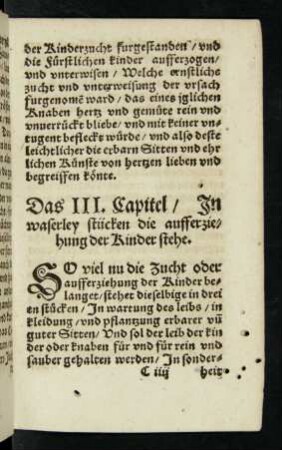 der Kinderzucht furgestanden / vnd
die Fürstlichen kinder aufferzogen /
vnd vnterwisen / Welche ernstliche
zucht vnd vnterweisung der vrsach
furgenomē ward / das eines jglichen
Knaben hertz vnd gemüte rein vnd
vnuerruckt bliebe / vnd mit keiner vn-
tugent befleckt würde / vnd also deste
leichtlicher die erbarn Sitten vnd ehr
lichen Künste von hertzen lieben vnd
begreiffen könte.
Das III. Capitel / In
waserley stücken die aufferzie-
hung der Kinder stehe.
SO viel nu die Zucht oder
aufferziehung der Kinder be-
langet / stehet dieselbige in drei
en stücken / In wartung des leibs / in
kleidung / vnd pflantzung erbarer vñ
guter Sitten / Vnd sol der leib der kin
der oder knaben für vnd für rein vnd
sauber gehalten werden / In sonder-
C iiij heit